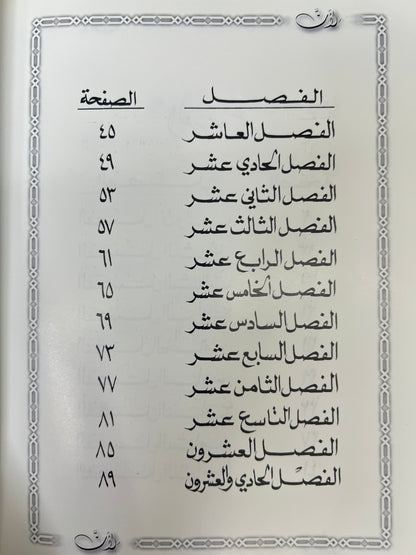 الفصل الصفحة
الفصل العاشر ٤٥
الفصل الحادي عشر ٤٩
الفصل الثاني عشر ٥٣
الفصل الثالث عشر ٥٧
الفصل الرابع عشر ٦١
الفصل الخامس عشر ٦٥
الفصل السادس عشر ٦٩
الفصل السابع عشر ٧٣
الفصل الثامن عشر ٧٧
الفصل التاسع عشر ٨١
الفصل العشرون ٨٥
الفصل الحادي والعشرون ٨٩